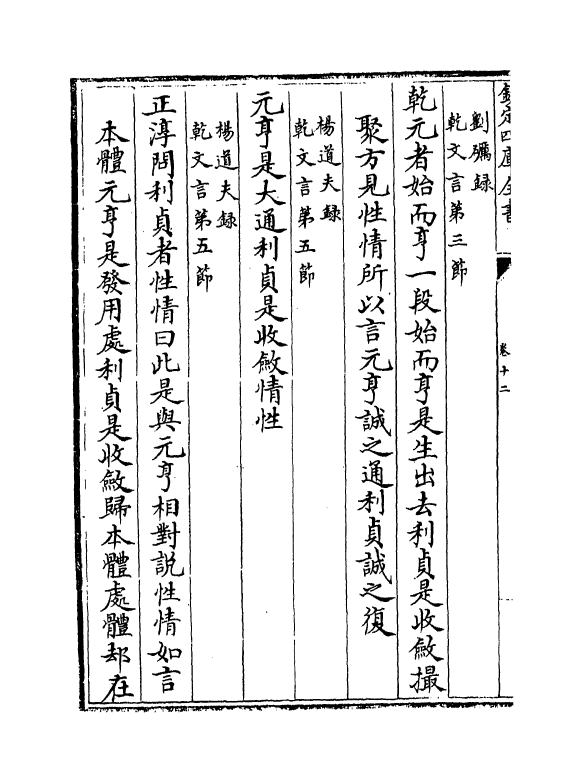 欽定四庫全書
卷十二
劉礪録
乾文言第三節
乾元者始而亨一段始而亨是生出去利貞是收斂撮
聚方見性情所以言元亨誠之通利貞誠之復
楊道夫録
乾文言第五節
元亨是大通利貞是收斂情性
楊道夫録
乾文言第五節
正淳問利貞者性情曰此是與元亨相對説性情如言
本體元亨是發用處利貞是收斂歸本體處體却在